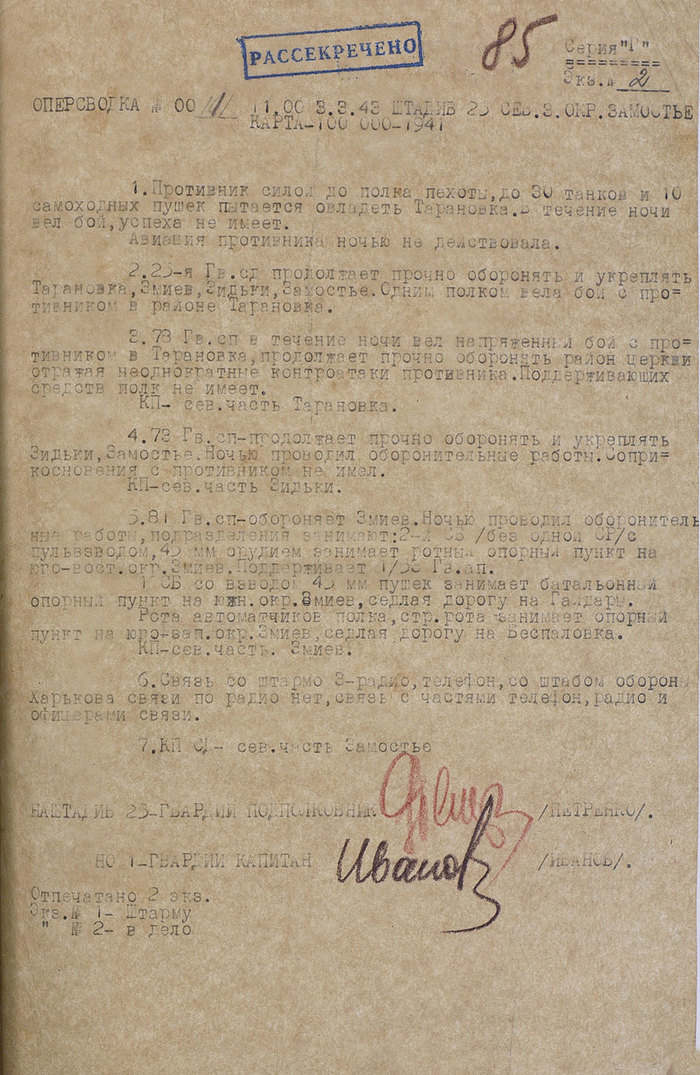 РАССЕКРЕЧЕНО
85
Серия"Г"
Экз.№ 2
ОПЕРСВОДКА № 00 11.00 3.3.43 ШТАДИВ 25 СЕВ.З.ОКР.ЗАМОСТЬЕ
КАРТА-100 000-1941
1.Противник силой до полка пехоты,до 30 танков и 10
самоходных пушек пытается овладеть Тарановка.В течение ночи
вел бой,успеха не имеет.
Авиация противника ночью не действовала.
2.25-я Гв.сд продолжает прочно оборонять и укреплять
Тарановка,Змиев,Зидьки,Замостье.Одним полком вела бой с про=
тивником в районе Тарановка.
3.78 Гв.сп в течение ночи вел напряженный бой с про=
тивником в Тарановка,продолжает прочно оборонять район церкви
отражая неоднократные контроатаки противника.Поддерживающих
средств полк не имеет.
КП- сев.часть Тарановка.
4.73 Гв.сп-продолжает прочно оборонять и укреплять
Зидьки,Замостье.Ночью проводил оборонительные работы.Сопри=
косновения с противником не имел.
КП-сев.часть Зидьки.
5.81 Гв.сп-обороняет Змиев.Ночью проводил оборонитель
ные работы,подразделения занимают:2-й СБ /без одной СР/с
пульвзводом,45 мм орудием занимает ротный опорный пункт на
юго-вост.окр.Змиев.Поддерживает 1/53 Гв.ап.
1 СБ со взводом 45 мм пушек занимает батальонный
опорный пункт на южн.окр.Змиев,седлая дорогу на Гайдары.
Рота автоматчиков полка,стр.рота занимает опорный
пункт на юго-зап.окр.Змиев,седлая дорогу на Беспаловка.
КП-сев.часть. Змиев.
6.Связь со штармо 3-радио,телефон,со штабом оборон
Харькова связи по радио нет,связь с частями телефон,радио и
офицерами связи.
7.КП СД- сев.часть Замостье
НАШТАДИВ 25-ГВАРДИИ ПОДПОЛКОВНИК /ПЕТРЕНКО/.
НО 1-ГВАРДИИ КАПИТАН Иванов /ИВАНОВ/.
Отпечатано 2 экз.
Экз.№ 1- Штарму
" № 2- в дело